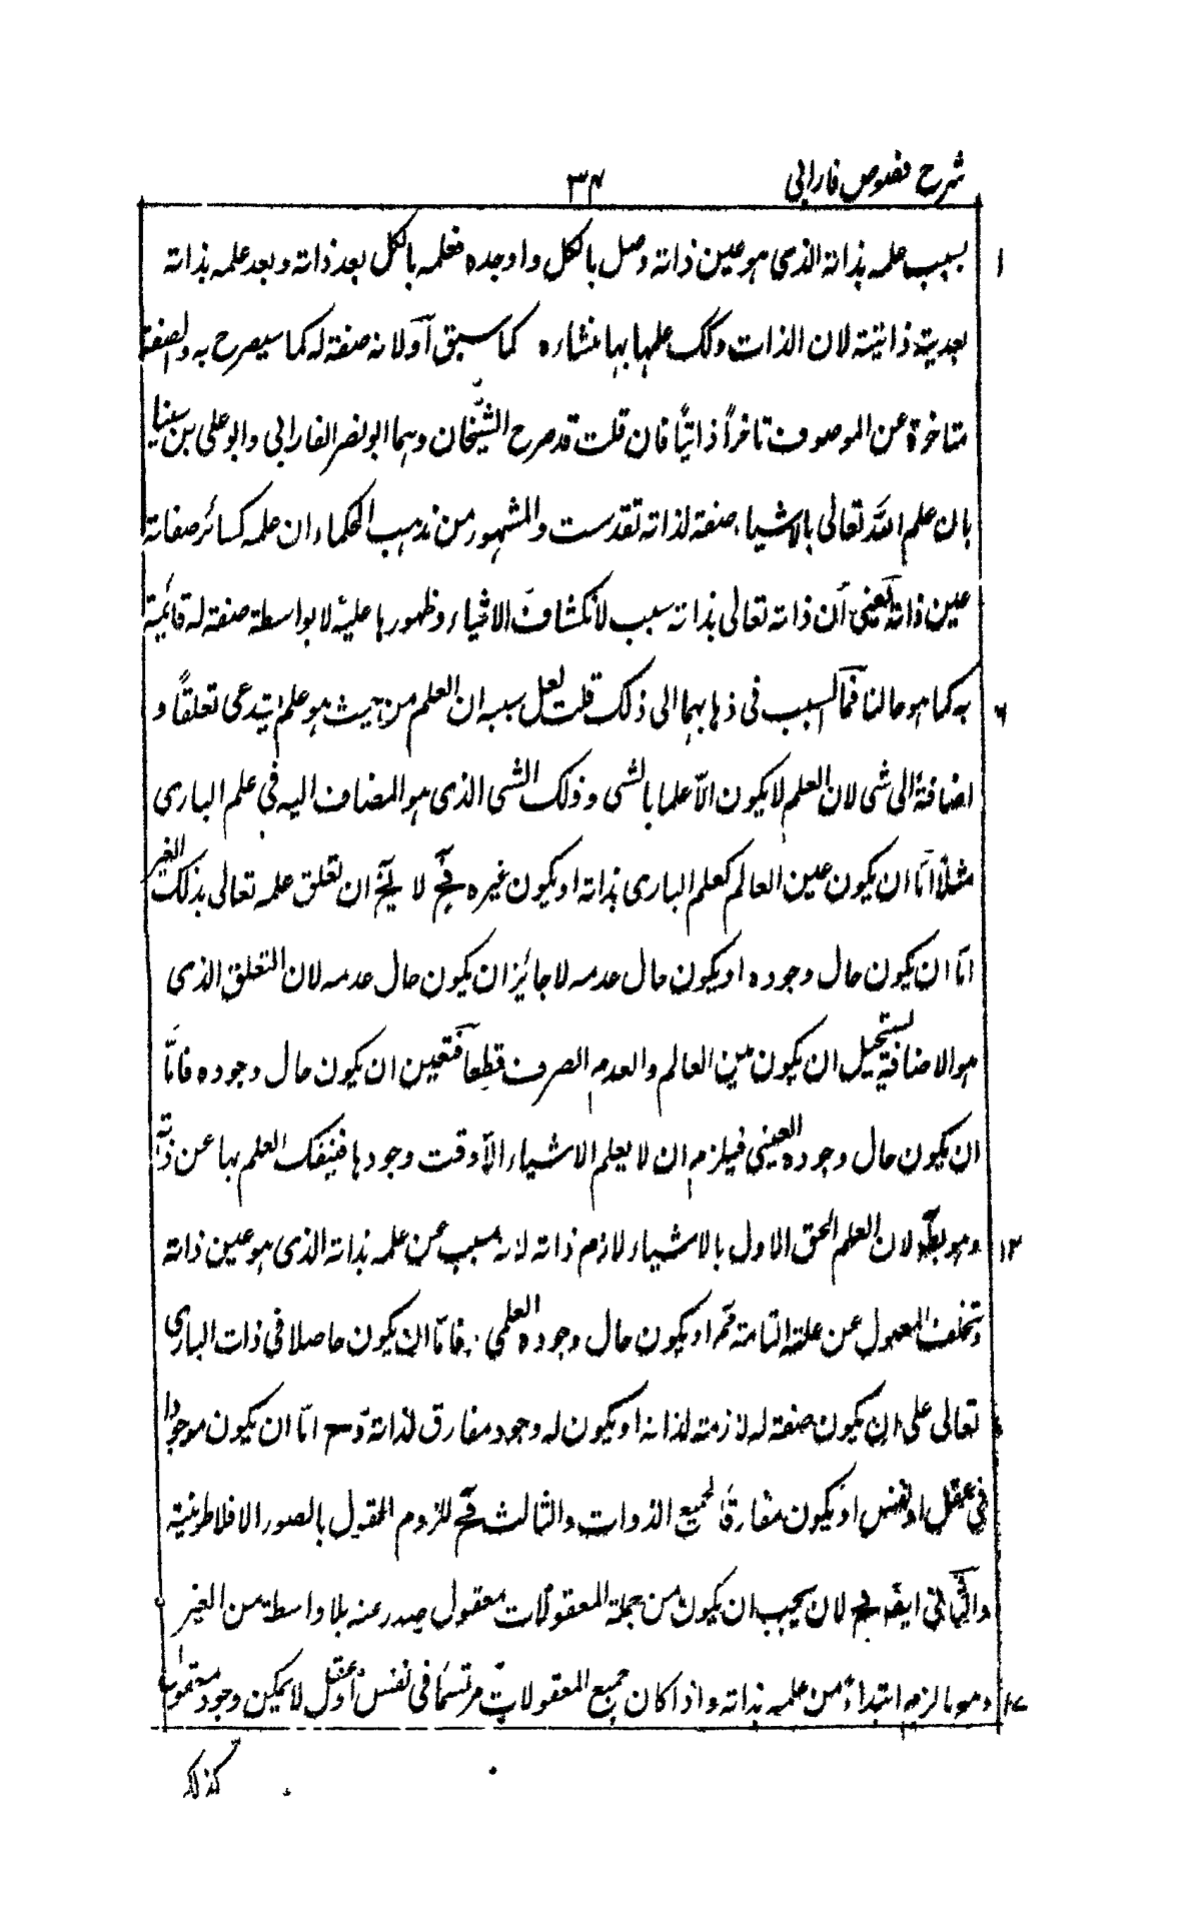 شرح فصوص فارابی
۳۴
۱ بسبب علمه بذاته الذی هو عین ذاته وصل بالکل و اوجده فعلمه بالکل بعد ذاته و بعد علمه بذاته
بعدیة ذاتیة لان الذات وکک علمها بها منشاره کما سبق آو لانه صفة له کما سیصرح به والصفة
متاخرة عن الموصوف تاخراً ذاتیًا فان قلت قد صرح الشیخان وهما ابو نصر الفارابی وابو علی بن سینا
بان علم الله تعالی بالاشیاء صفة لذاته تقدست والمشهور من مذهب الحکماء ان علمه کسائر صفاته
عین ذاته یعنی ان ذاته تعالی بذاته سبب لانکشاف الاشیاء وظهورها علیه لا بواسطة صفة له قائمة
۶ به کما هو حالنا فما السبب فی ذهابهما الی ذلک قلت لعل سببه ان العلم من حیث هو علم یتدعی تعلقًا و
اضافة الی شی لان العلم لا یکون الّا علما بالشی وذلک الشی الذی هو المضاف الیه فی علم الباری
مثلًا امّا ان یکون عین العالم کعلم الباری بذاته او یکون غیره فح لا یخ ان تعلق علمه تعالی بذلک الغیر
امّا ان یکون حال وجوده او یکون حال عدمه لا جائز ان یکون حال عدمه لان التعلق الذی
هو الاضافة یستحیل ان یکون بین العالم والعدم الصرف قطعاً فتعین ان یکون حال وجوده فامّا
ان یکون حال وجوده العینی فیلزم ان لا یعلم الاشیاء الّا وقت وجودها فینفک العلم بها عن ذاته
۱۲ وهو بط لان العلم الحق الاول بالاشیاء لازم ذاته لانه مسبب عن علمه بذاته الذی هو عین ذاته
وتخلف المعلول عن علته التامة مح او یکون حال وجوده العلمی فامّا ان یکون حاصلا فی ذات الباری
تعالی علی ان یکون صفة له لازمة لذاته او یکون له وجود مفارق لذاته وح امّا ان یکون موجودا
فی عقل او نفس او یکون مفارقًا لجمیع الذوات والثالث مح للزوم القول بالصور الافلاطونیة
والثانی ایضًا مح لان یجب ان یکون من جملة المعقولات معقول صدر عنه بلا واسطة من الغیر
۱۷ وهو ما لزمه ابتداءً من علمه بذاته واذا کان جمیع المعقولات مرتسمًا فی نفس او عقل لا یمکن وجود معقول
کذلک